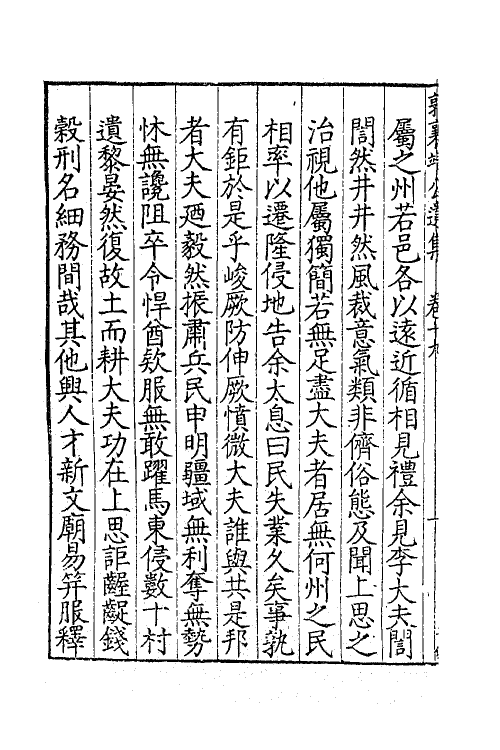 屬之州若邑各以遠近循相見禮余見李大夫誾
誾然井井然風裁意氣類非儕俗態及聞上思之
治視他屬獨簡若無足盡大夫者居無何州之民
相率以遷隆侵地告余太息曰民失業久矣事孰
有鉅於是乎峻厥防伸厥憤微大夫誰與其是邦
者大夫廼毅然振肅兵民申明疆域無利奪無勢
怵無讒阻卒令悍酋欵服無敢躍馬東侵數十村
遺黎晏然復故土而耕大夫功在上思詎齷齪錢
穀刑名細務間哉其他興人才新文廟易笄服釋